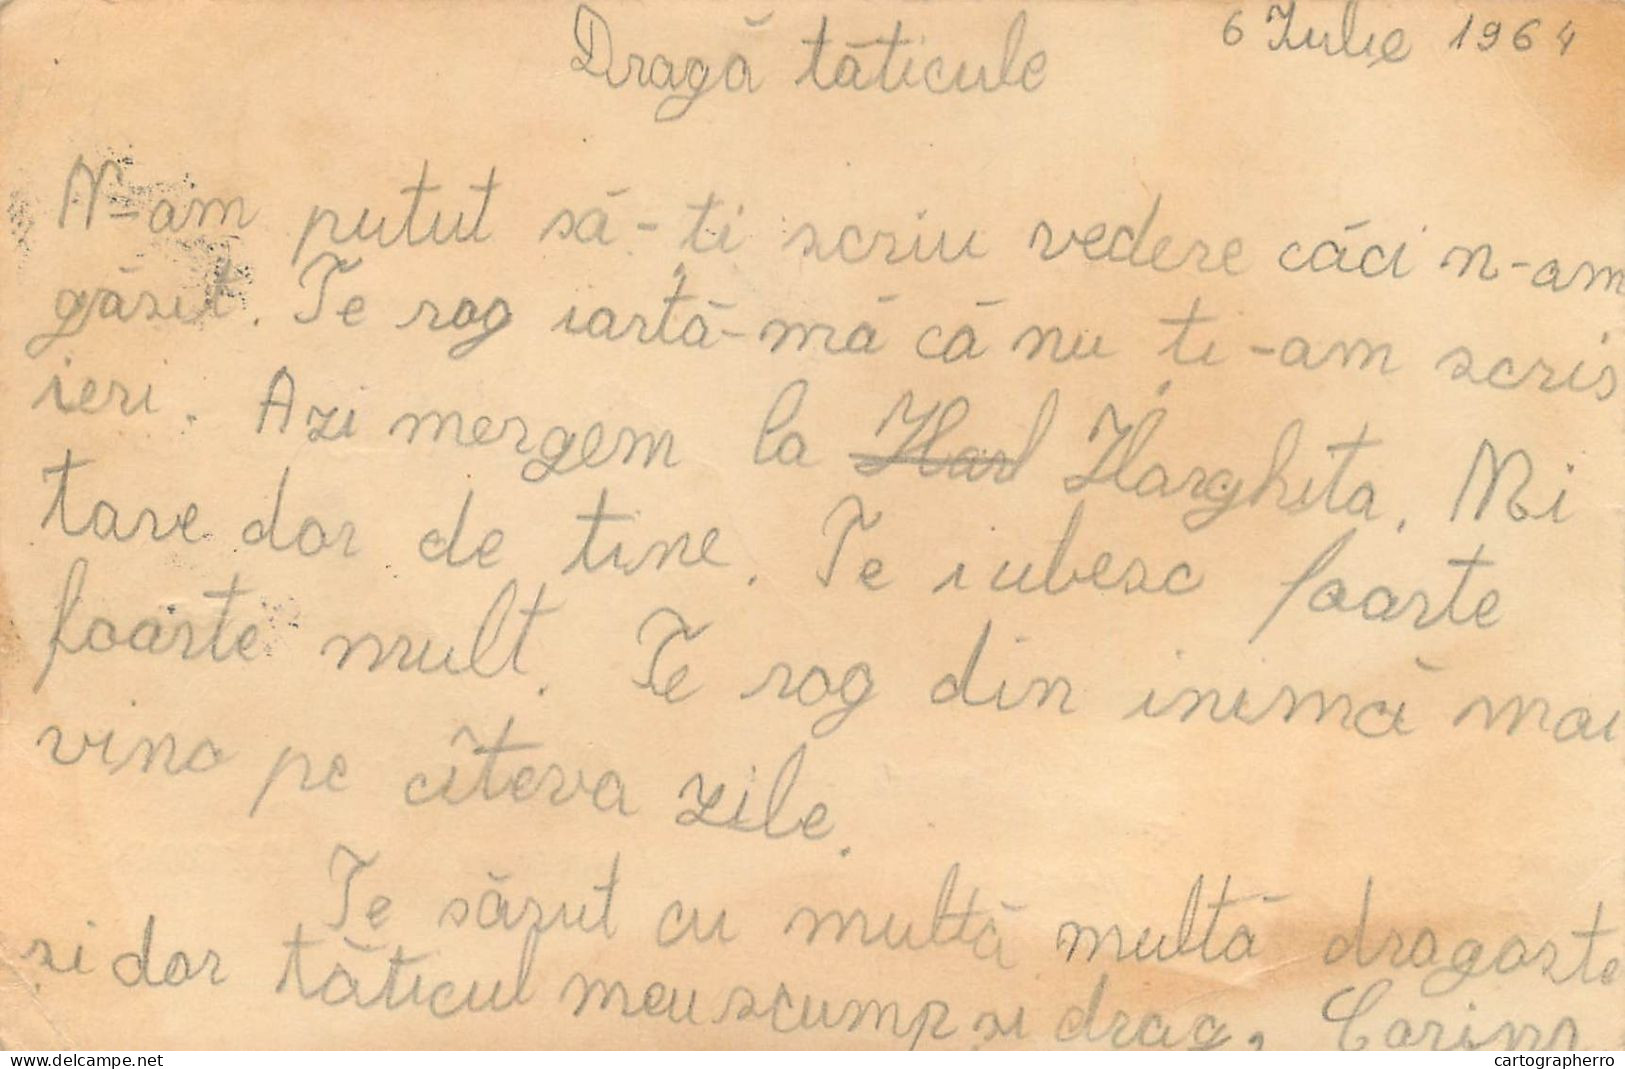 6 Iulie 1964
Dragă tăticule
N-am putut să-ți scriu vedere căci n-am
găsit. Te rog iartă-mă că nu ți-am scris
ieri. Azi mergem la Harl Harghita. Mi
tare dor de tine. Te iubesc foarte
foarte mult. Te rog din inimă mai
vino pe cîteva zile.
Te sărut cu multă multă dragoste
și dor tăticul meu scump și drag, Corina
delcampe.net
cartographerro